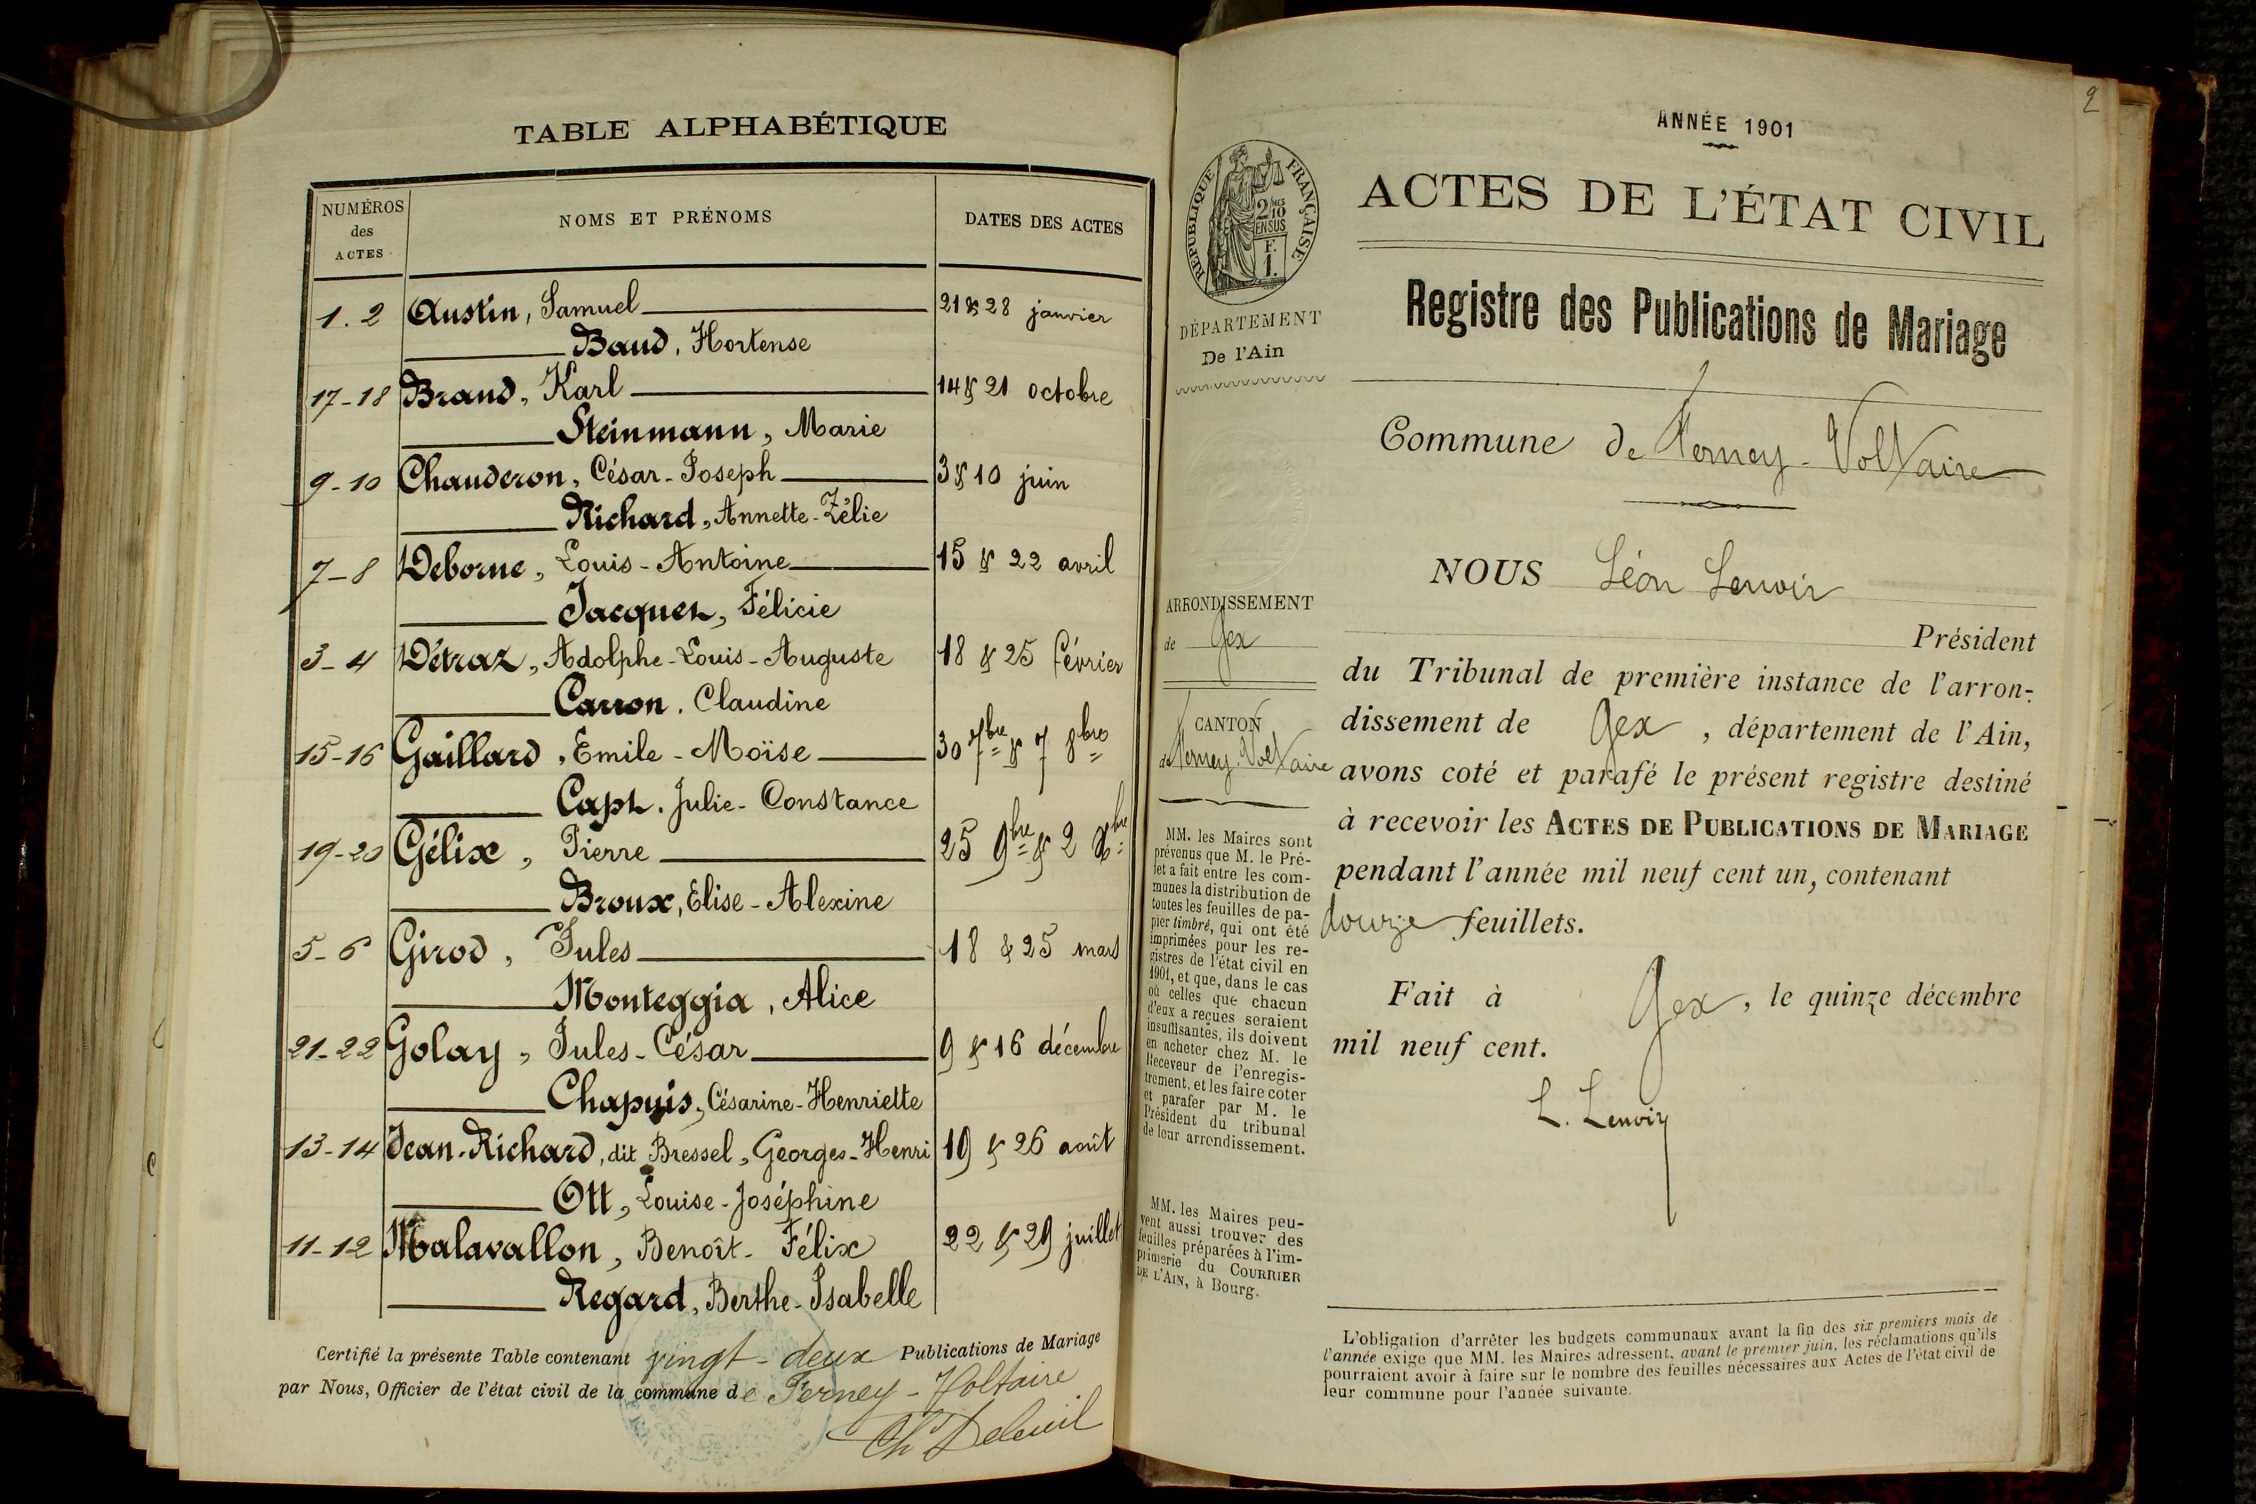 TABLE ALPHABÉTIQUE
NUMÉROS
des
ACTES
NOMS ET PRÉNOMS
DATES DES ACTES
1.2 Austin, Samuel 21 & 28 janvier
Baud, Hortense
17-18 Brand, Karl 14 & 21 octobre
Steinmann, Marie
9-10 Chauderon, César-Joseph 3 & 10 juin
Richard, Annette-Zélie
7-8 Deborne, Louis-Antoine 15 & 22 avril
Jacquet, Félicie
3-4 Détraz, Adolphe-Louis-Auguste 18 & 25 février
Carron, Claudine
15-16 Gaillard, Emile-Moïse 30 7bre & 7 8bre
Capt, Julie-Constance
19-20 Gélix, Pierre 25 9bre & 2 Xbre
Broux, Elise-Alexine
5-6 Girod, Jules 18 & 25 mars
Monteggia, Alice
21-22 Golay, Jules-César 9 & 16 décembre
Chapuis, Césarine-Henriette
13-14 Jean-Richard, dit Bressel, Georges-Henri 19 & 26 août
Ott, Louise-Joséphine
11-12 Malavallon, Benoît-Félix 22 & 29 juillet
Regard, Berthe-Isabelle
Certifié la présente Table contenant vingt-deux Publications de Mariage
par Nous, Officier de l'état civil de la commune de Ferney-Voltaire
2
ANNÉE 1901
RÉPUBLIQUE FRANÇAISE
2/10
EN SUS
F.
1.
DÉPARTEMENT
De l'Ain
ARRONDISSEMENT
de Gex
CANTON
de Ferney-Voltaire
MM. les Maires sont
prévenus que M. le Pré-
fet a fait entre les com-
munes la distribution de
toutes les feuilles de pa-
pier timbré, qui ont été
imprimées pour les re-
gistres de l'état civil en
1901, et que, dans le cas
où celles que chacun
d'eux a reçues seraient
insuffisantes, ils doivent
en acheter chez M. le
Receveur de l'enregis-
trement, et les faire coter
et parafer par M. le
Président du tribunal
de leur arrondissement.
MM. les Maires peu-
vent aussi trouver des
feuilles préparées à l'im-
primerie du COURRIER
DE L'AIN, à Bourg.
ACTES DE L'ÉTAT CIVIL
Registre des Publications de Mariage
Commune de Ferney-Voltaire
NOUS Léon Lenoir
Président
du Tribunal de première instance de l'arron-
dissement de Gex, département de l'Ain,
avons coté et parafé le présent registre destiné
à recevoir les ACTES DE PUBLICATIONS DE MARIAGE
pendant l'année mil neuf cent un, contenant
douze feuillets.
Fait à Gex, le quinze décembre
mil neuf cent.
L. Lenoir
L'obligation d'arrêter les budgets communaux avant la fin des six premiers mois de
l'année exige que MM. les Maires adressent, avant le premier juin, les réclamations qu'ils
pourraient avoir à faire sur le nombre des feuilles nécessaires aux Actes de l'état civil de
leur commune pour l'année suivante.